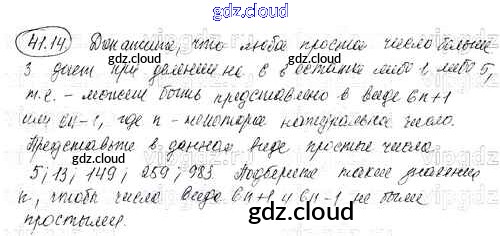 gdz.cloud
41.14. Докажите, что любое простое число больше
3 дает при делении на 6 в остатке либо 1 либо 5,
т.е. - может быть представлено в виде 6n+1
или 6n-1, где n - некоторое натуральное число.
Представьте в данном виде простые числа
5; 13; 149; 259; 983 Подберите такие значения
n, чтобы числа вида 6n+1 и 6n-1 не были
простыми.
gdz.cloud
gdz.cloud
gdz.cloud
gdz.cloud
gdz.cloud